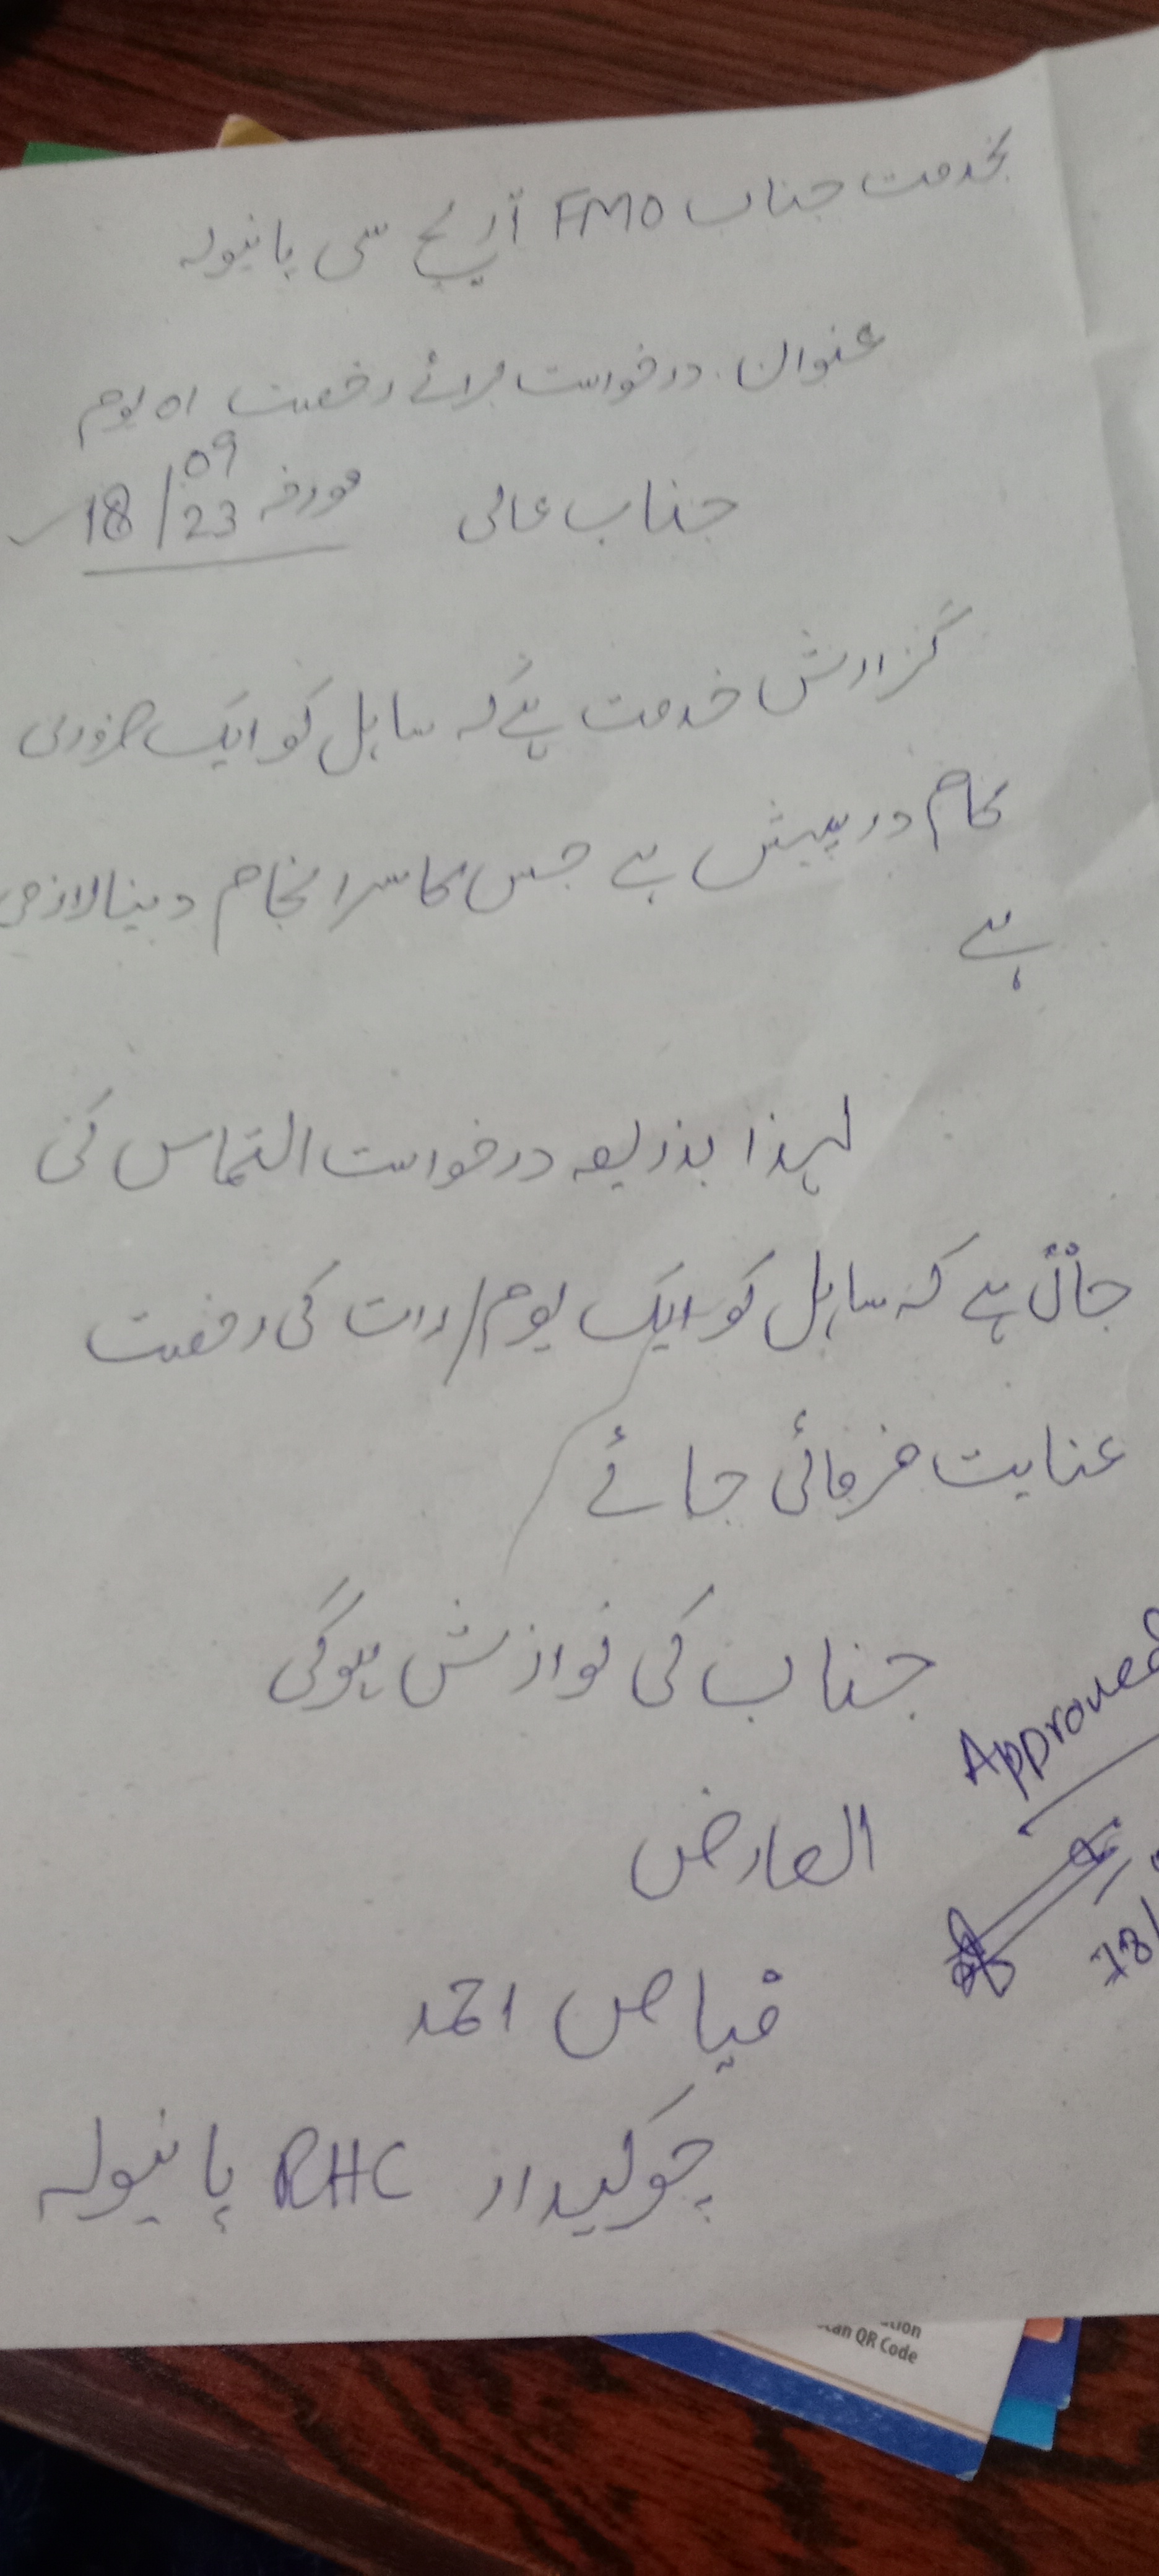 بخدمت جناب FMO آر ایچ سی پانیولہ
عنوان. درخواست برائے رخصت 01 یوم
جناب عالی مورخہ 18/09/23
گزارش خدمت ہے کہ سایل کو ایک ضروری
کام درپیش ہے جس کا سرانجام دینا لازمی
ہے
لہذا بذریعہ درخواست التماس کی
جاتی ہے کہ سایل کو ایک یوم/رات کی رخصت
عنایت فرمائی جائے
جناب کی نوازش ہوگی
Approved
العارض
18/
فیاض احمد
چوکیدار RHC پانیولہ
an QR Code